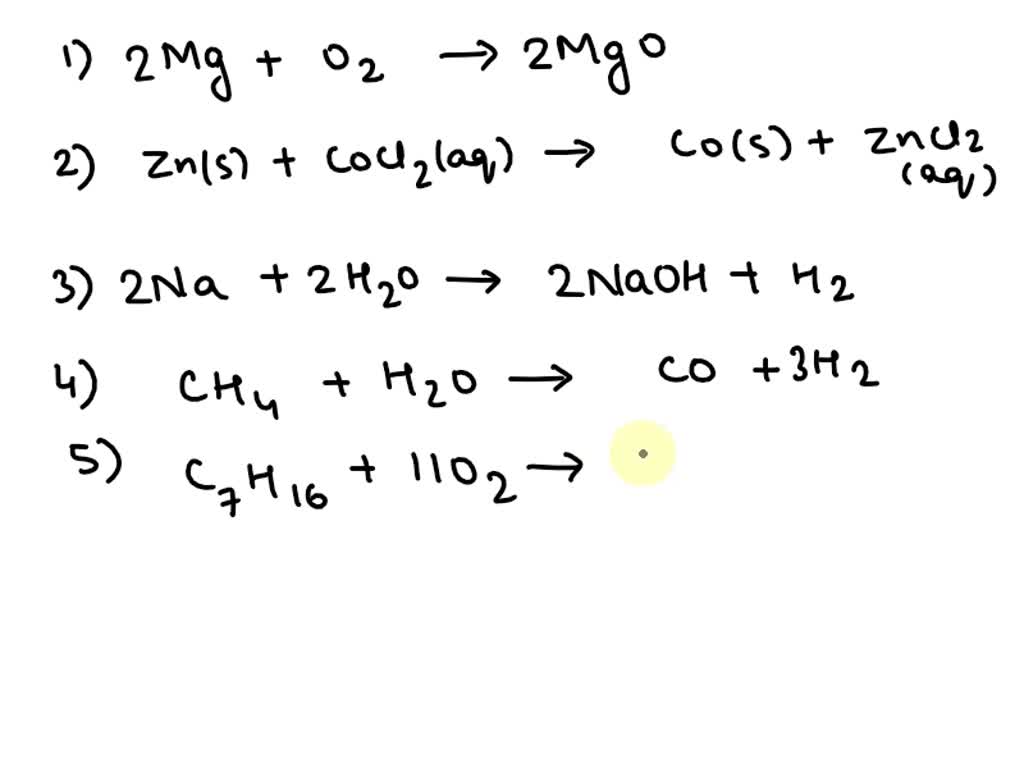 1) 2Mg + O₂ → 2MgO
2) Zn(s) + CoCl₂(aq) → Co(s) + ZnCl₂ (aq)
3) 2Na + 2H₂O → 2NaOH + H₂
4) CH₄ + H₂O → CO + 3H₂
5) C₇H₁₆ + 11O₂ →